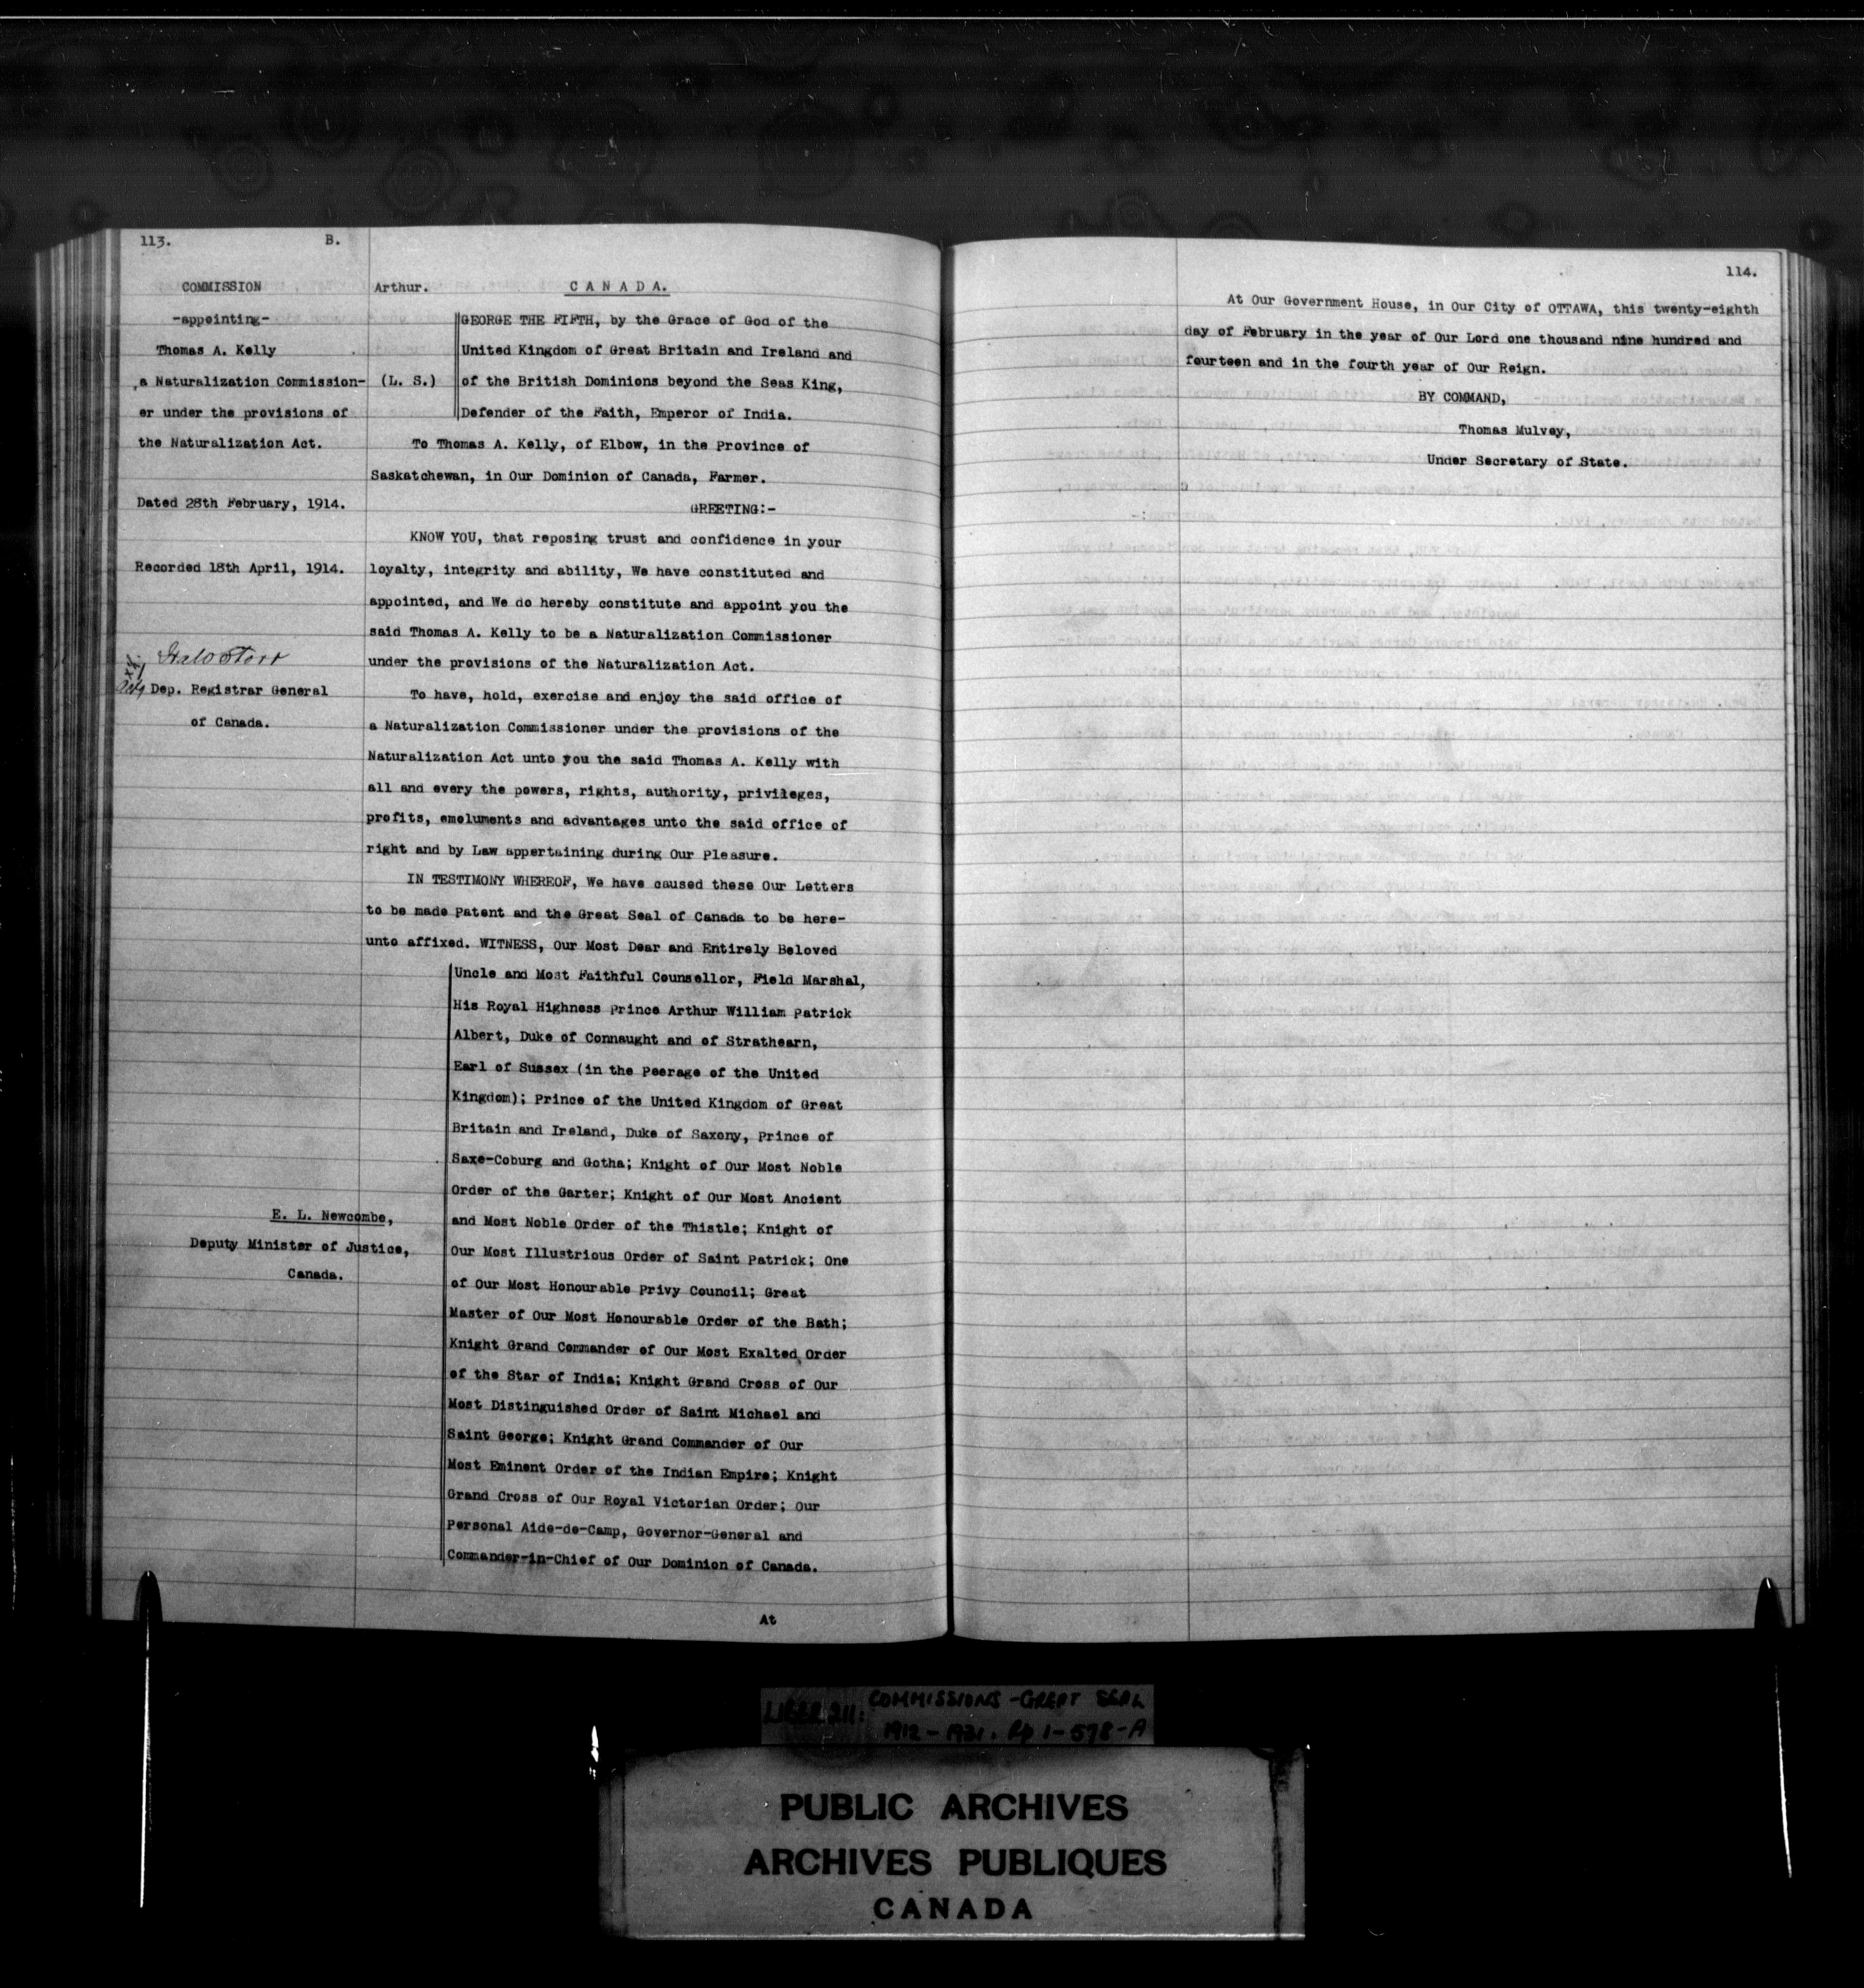 113. B.
COMMISSION
-appointing-
Thomas A. Kelly
a Naturalization Commission-
er under the provisions of
the Naturalization Act.
Dated 28th February, 1914.
Recorded 18th April, 1914.
Dep. Registrar General
of Canada.
E. L. Newcombe,
Deputy Minister of Justice,
Canada.
Arthur. CANADA.
(L. S.)
GEORGE THE FIFTH, by the Grace of God of the
United Kingdom of Great Britain and Ireland and
of the British Dominions beyond the Seas King,
Defender of the Faith, Emperor of India.
To Thomas A. Kelly, of Elbow, in the Province of
Saskatchewan, in Our Dominion of Canada, Farmer.
GREETING:-
KNOW YOU, that reposing trust and confidence in your
loyalty, integrity and ability, We have constituted and
appointed, and We do hereby constitute and appoint you the
said Thomas A. Kelly to be a Naturalization Commissioner
under the provisions of the Naturalization Act.
To have, hold, exercise and enjoy the said office of
a Naturalization Commissioner under the provisions of the
Naturalization Act unto you the said Thomas A. Kelly with
all and every the powers, rights, authority, privileges,
profits, emoluments and advantages unto the said office of
right and by Law appertaining during Our Pleasure.
IN TESTIMONY WHEREOF, We have caused these Our Letters
to be made Patent and the Great Seal of Canada to be here-
unto affixed. WITNESS, Our Most Dear and Entirely Beloved
Uncle and Most Faithful Counsellor, Field Marshal,
His Royal Highness Prince Arthur William Patrick
Albert, Duke of Connaught and of Strathearn,
Earl of Sussex (in the Peerage of the United
Kingdom); Prince of the United Kingdom of Great
Britain and Ireland, Duke of Saxony, Prince of
Saxe-Coburg and Gotha; Knight of Our Most Noble
Order of the Garter; Knight of Our Most Ancient
and Most Noble Order of the Thistle; Knight of
Our Most Illustrious Order of Saint Patrick; One
of Our Most Honourable Privy Council; Great
Master of Our Most Honourable Order of the Bath;
Knight Grand Commander of Our Most Exalted Order
of the Star of India; Knight Grand Cross of Our
Most Distinguished Order of Saint Michael and
Saint George; Knight Grand Commander of Our
Most Eminent Order of the Indian Empire; Knight
Grand Cross of Our Royal Victorian Order; Our
Personal Aide-de-Camp, Governor-General and
Commander-in-Chief of Our Dominion of Canada.
At
114.
At Our Government House, in Our City of OTTAWA, this twenty-eighth
day of February in the year of Our Lord one thousand nine hundred and
fourteen and in the fourth year of Our Reign.
BY COMMAND,
Thomas Mulvey,
Under Secretary of State.
LIBER 211: COMMISSIONS - GREAT SEAL
1912 - 1931. Pp 1-578-A
PUBLIC ARCHIVES
ARCHIVES PUBLIQUES
CANADA